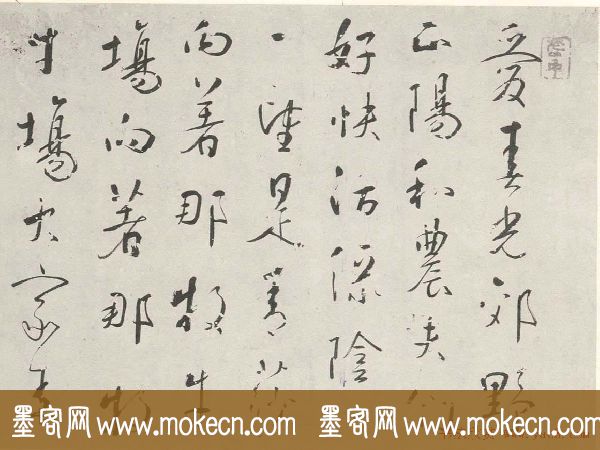 爱春光郊野
正陽和農
好快活陰
一望是青
向著那牧牛
場向著那牧
牛場大家
墨客网 www.mokecn.com 墨客网 www.mokecn.com